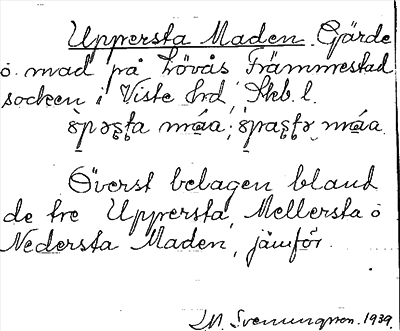 Uppersta Maden. Gärde
o. mad på Lövås Främmestad
socken i Viste hrd, Skb. l.
Överst belagen bland
de tre Uppersta, Mellersta o
Nedersta Maden, jämför.
Svenungsson. 1939.